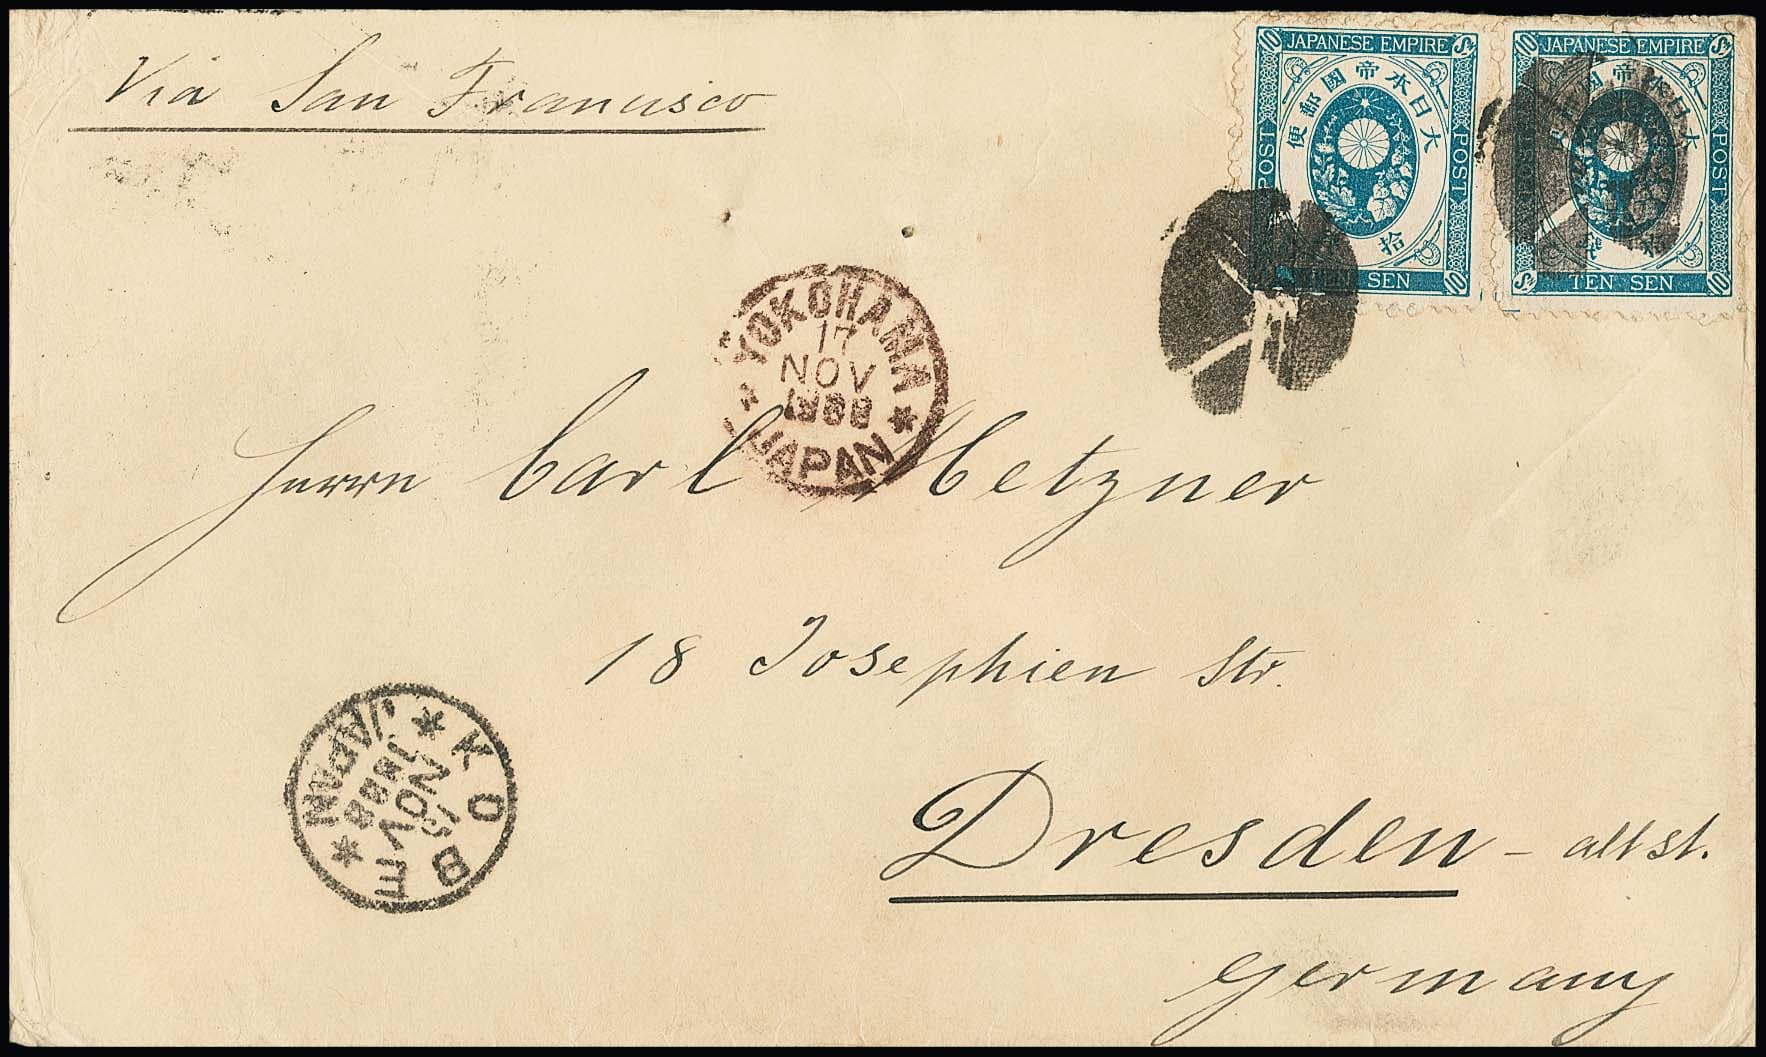 Via San Francisco
10 JAPANESE EMPIRE Sn
大日本帝國郵便
POST POST
拾
SEN 10
10 JAPANESE EMPIRE Sn
大日本帝國
POST
拾錢
Sn TEN SEN 10
YOKOHAMA
17
NOV
1888
JAPAN
Herrn Carl Metzner
18 Josephien Str.
Dresden - altst.
Germany
KOBE
15
NOV
1888
JAPAN